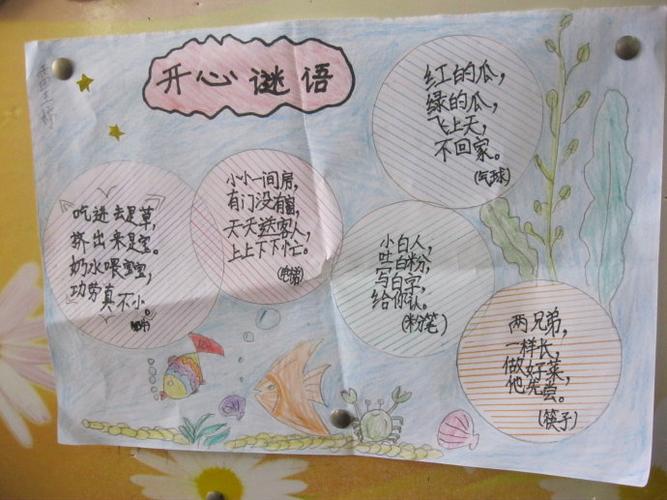 开心谜语
红的瓜，
绿的瓜，
飞上天，
不回家。
(气球)
小小一间房，
有门没有窗，
天天送客人，
上上下下忙。
吃进去是草，
挤出来是宝。
奶水喂宝宝，
功劳真不小。
小白人，
吐白粉，
写白字，
给你认。
(粉笔)
两兄弟，
一样长，
做好菜，
他先尝。
(筷子)